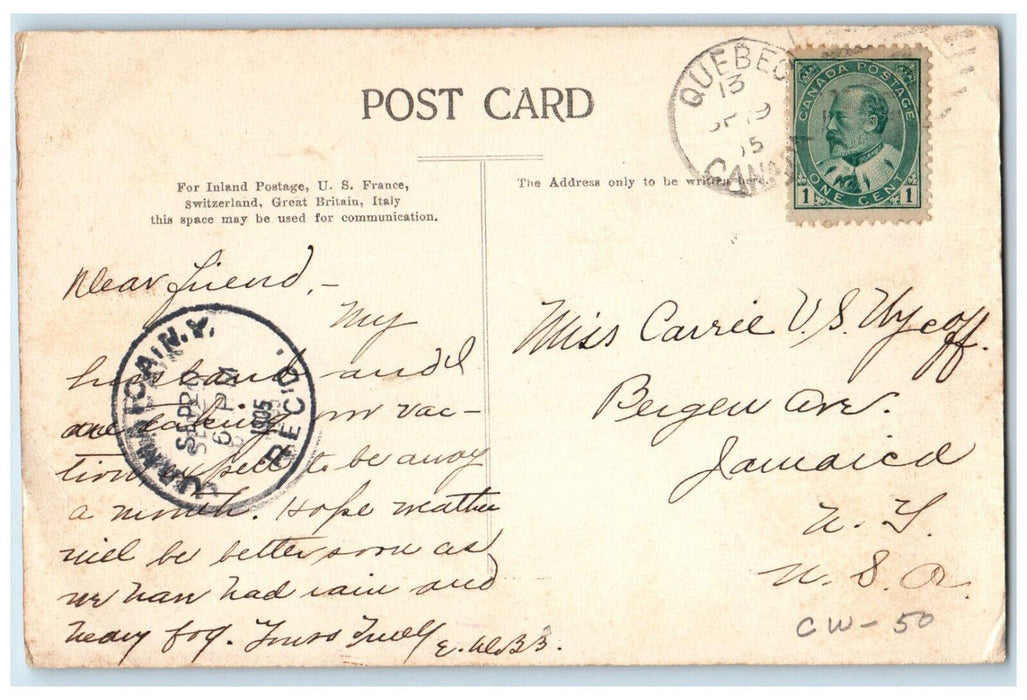 POST CARD
For Inland Postage, U. S. France,
Switzerland, Great Britain, Italy
this space may be used for communication.
The Address only to be written here
QUEBEC
13
SP 19
05
CANADA
CANADA POSTAGE
1 ONE CENT 1
Dear friend,-
My
husband and I
are taking our vac-
tion expect to be away
a month. Hope weather
will be better soon as
we have had rain and
heavy fog. Yours Truly
JAMAICA, N.Y.
SEP 20
6 PM
1905
REC'D.
Miss Carrie V. S. Wycoff.
Bergen Ave.
Jamaica
N. Y.
U. S. A.
CW-50